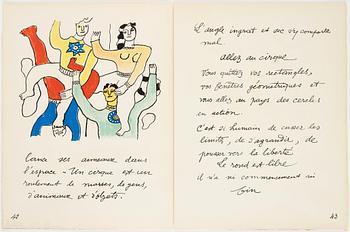 lance ses anneaux dans
l'espace - Un cirque est un
roulement de masses, de gens,
d'animaux et d'objets.
42
L'angle ingrat et sec s'y comporte
mal.
Allez au cirque
Vous quittez vos rectangles,
vos fenêtres géométriques et
vous allez au pays des cercles
en action.
C'est si humain de casser les
limites, de s'agrandir, de
pousser vers la liberté.
Le rond est libre
il n'a ni commencement ni
fin
43